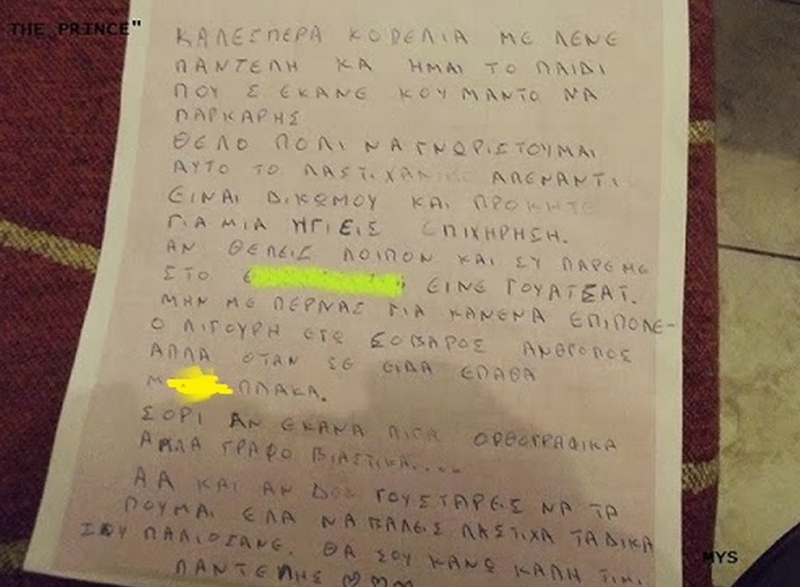 THE „PRINCE"
ΚΑΛΕΣΠΕΡΑ ΚΟΠΕΛΙΑ ΜΕ ΛΕΝΕ
ΠΑΝΤΕΛΗ ΚΑ ΗΜΑΙ ΤΟ ΠΑΙΔΙ
ΠΟΥ Σ ΕΚΑΝΕ ΚΟΥΜΑΝΤΟ ΝΑ
ΠΑΡΚΑΡΗΣ
ΘΕΛΟ ΠΟΛΙ ΝΑ ΓΝΩΡΙΣΤΟΥΜΑΙ
ΑΥΤΟ ΤΟ ΛΑΣΤΙΧΑΝΙΚΟ ΑΠΕΝΑΝΤΙ
ΕΙΝΑΙ ΔΙΚΩΜΟΥ ΚΑΙ ΠΡΟΚΗΤΕ
ΓΙΑ ΜΙΑ ΥΓΙΕΙΣ ΕΠΙΧΗΡΗΣΗ.
ΑΝ ΘΕΛΕΙΣ ΛΟΙΠΟΝ ΚΑΙ ΣΥ ΠΑΡΕ ΜΕ
ΣΤΟ 6 ΕΙΝΕ ΓΟΥΑΤΣΑΤ.
ΜΗΝ ΜΕ ΠΕΡΝΑΣ ΓΙΑ ΚΑΝΕΝΑ ΕΠΙΠΟΛΕ-
Ο ΛΙΓΟΥΡΗ ΕΓΩ ΣΟΒΑΡΟΣ ΑΝΘΡΟΠΟΣ
ΑΛΛΑ ΟΤΑΝ ΣΕ ΕΙΔΑ ΕΠΑΘΑ
Μ ΠΛΑΚΑ.
ΣΟΡΙ ΑΝ ΕΚΑΝΑ ΛΙΓΑ ΟΡΘΟΓΡΑΦΙΚΑ
ΑΛΛΑ ΓΡΑΦΟ ΒΙΑΣΤΙΚΑ....
ΑΑ ΚΑΙ ΑΝ ΔΕΝ ΓΟΥΣΤΑΡΕΙΣ ΝΑ ΤΑ
ΠΟΥΜΑΙ ΕΛΑ ΝΑ ΒΑΛΕΙΣ ΛΑΣΤΙΧΑ ΤΑ ΔΙΚΑ
ΣΟΥ ΠΑΛΙΟΣΑΝΕ. ΘΑ ΣΟΥ ΚΑΝΩ ΚΑΛΗ ΤΙΜΙ.
ΠΑΝΤΕΛΗΣ ♡♡♡
MYS